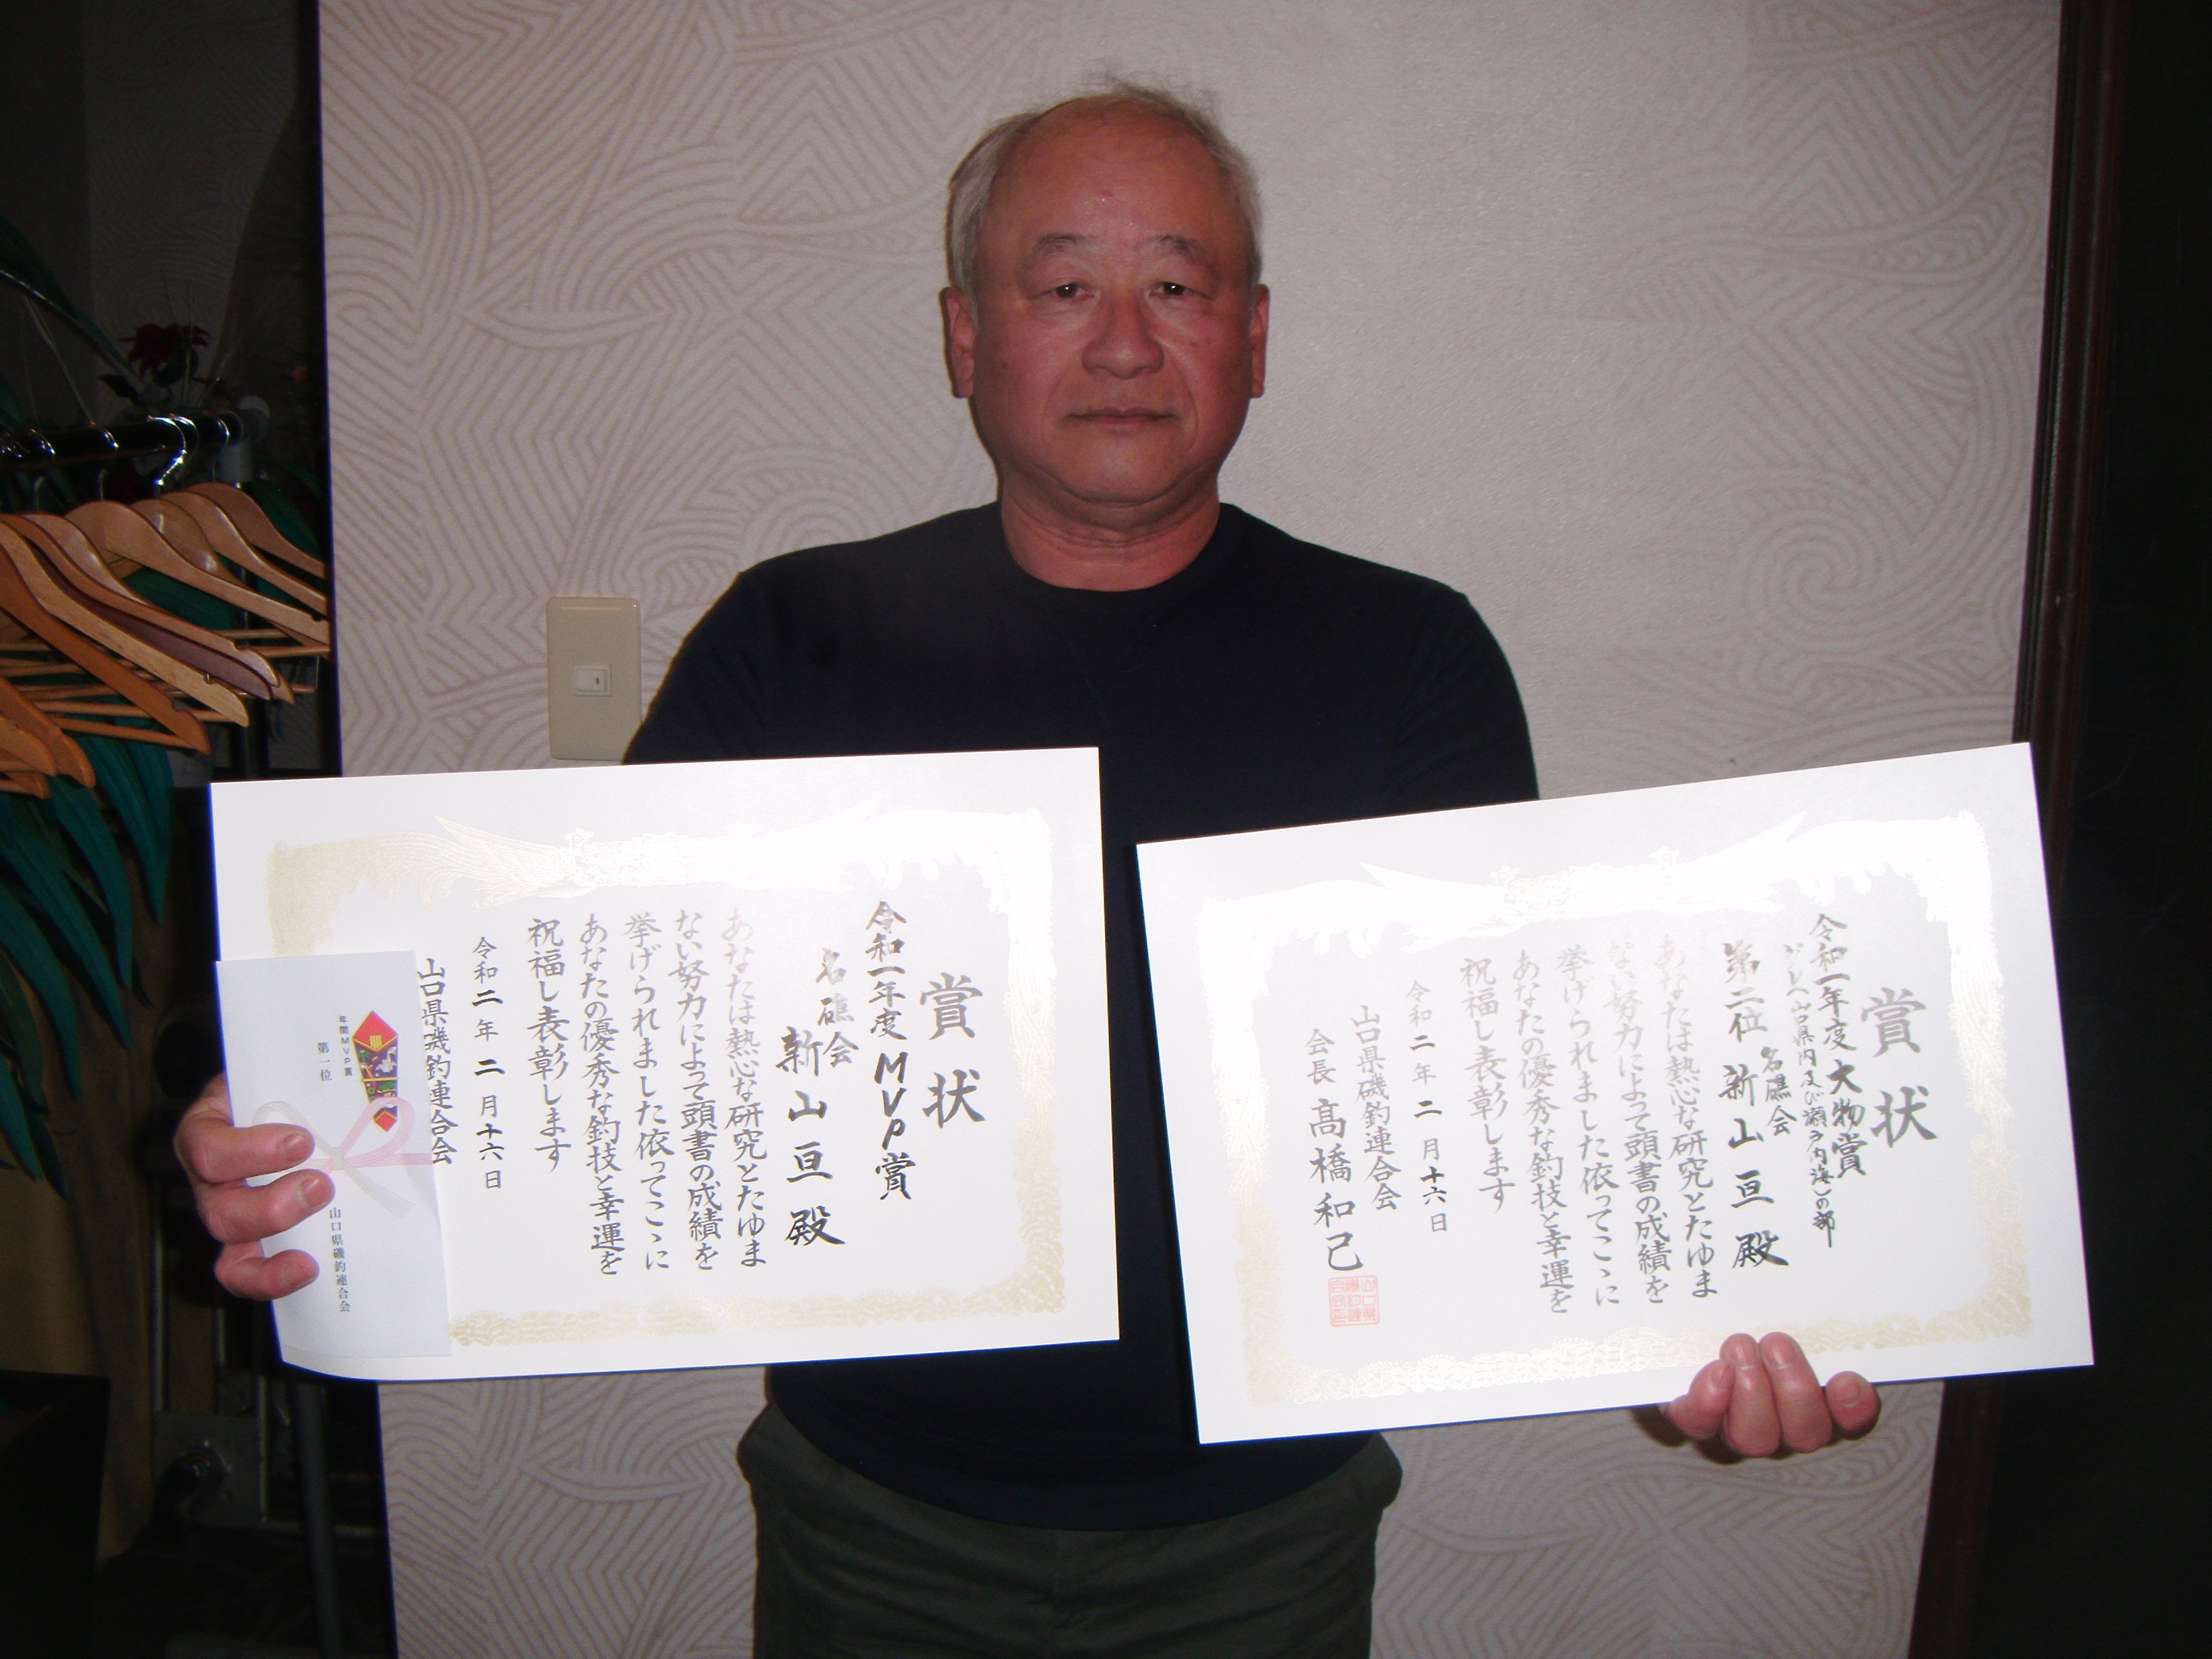 賞状
令和一年度MVP賞
名礁会
新山亘殿
あなたは熱心な研究とたゆま
ない努力によって頭書の成績を
挙げられました依ってこゝに
あなたの優秀な釣技と幸運を
祝福し表彰します
令和二年二月十六日
山口県磯釣連合会
年間MVP賞
第一位
山口県磯釣連合会
賞状
令和一年度大物賞
グレ(山口県内及び瀬戸内海)の部
名礁会
第二位新山亘殿
あなたは熱心な研究とたゆま
ない努力によって頭書の成績を
挙げられました依ってこゝに
あなたの優秀な釣技と幸運を
祝福し表彰します
令和二年二月十六日
山口県磯釣連合会
会長髙橋和己